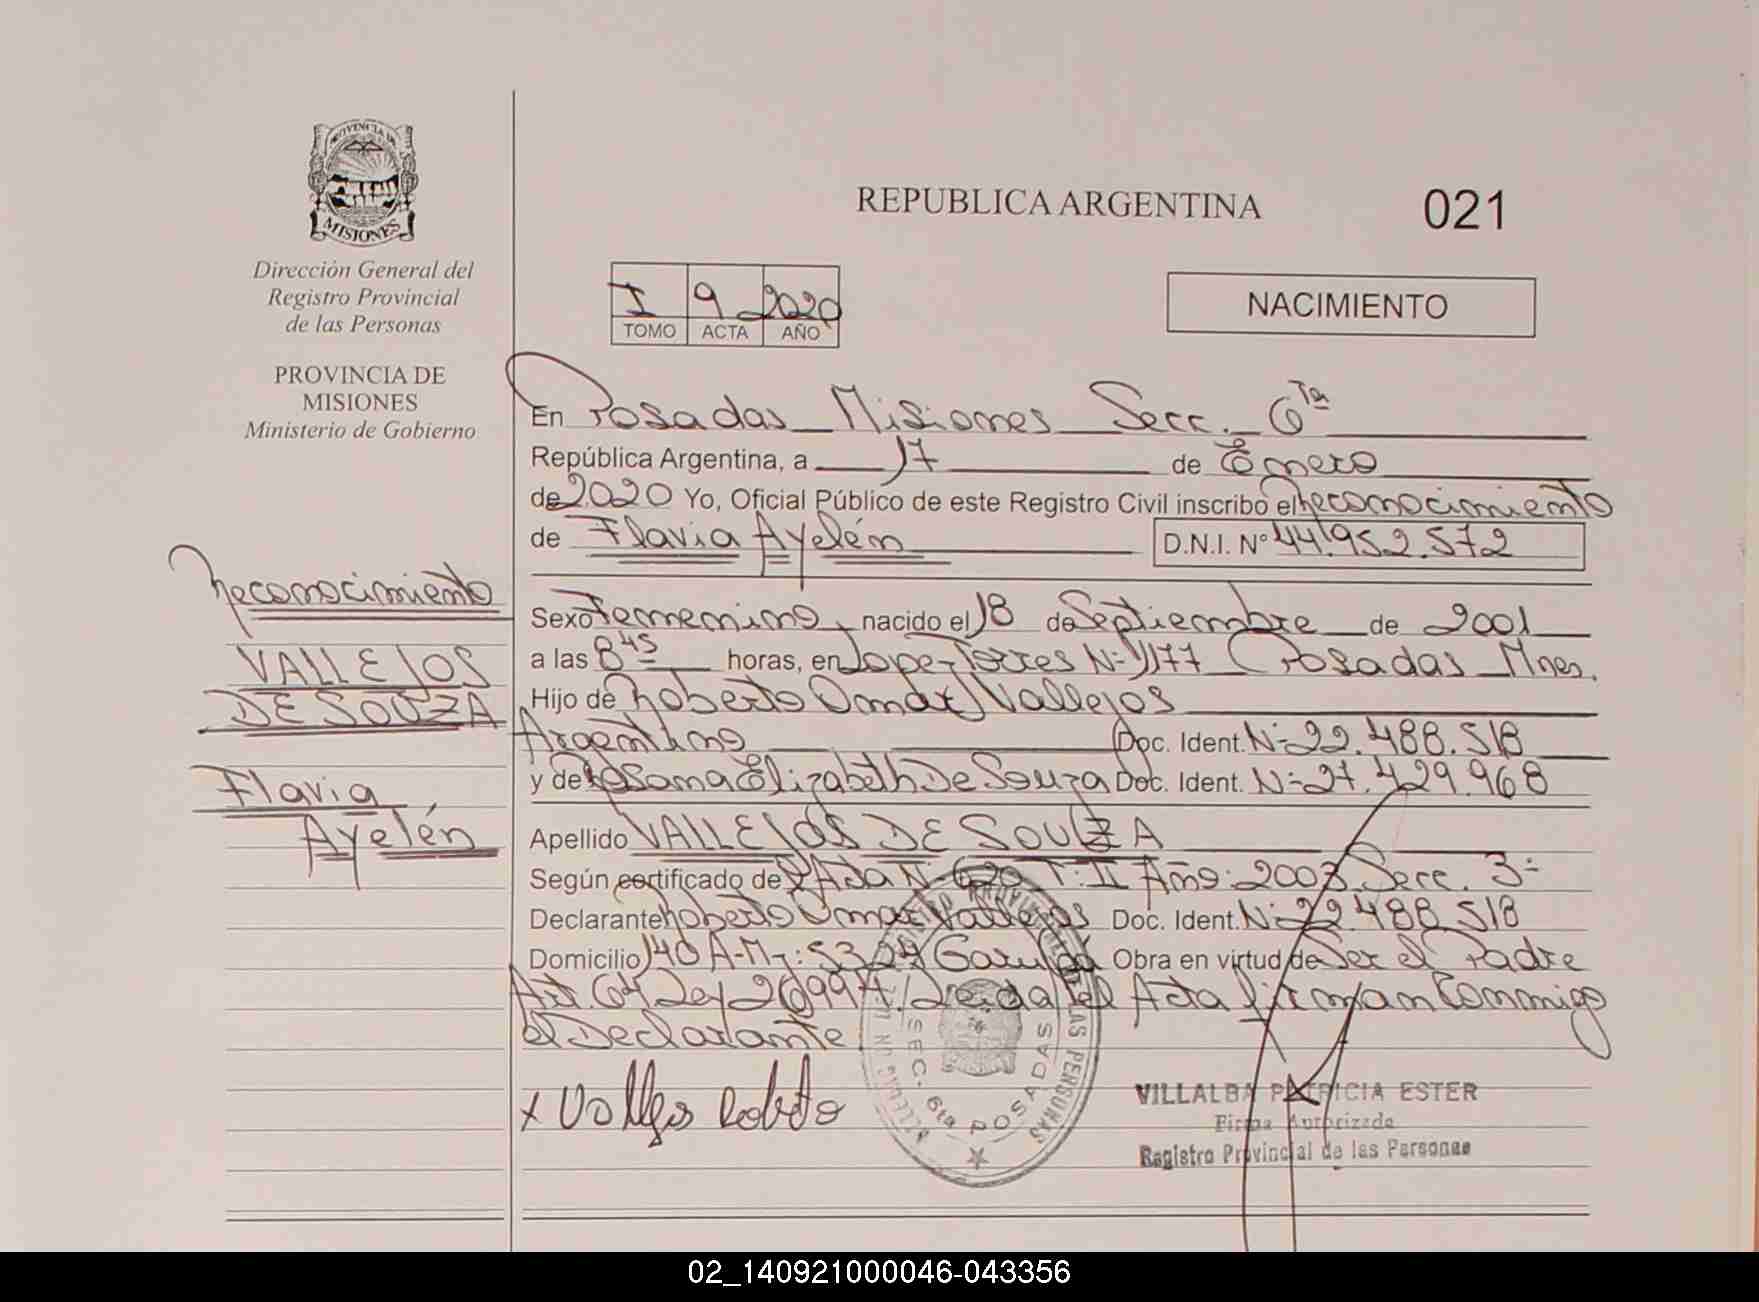 PROVINCIA DE
MISIONES
Dirección General del
Registro Provincial
de las Personas
PROVINCIA DE
MISIONES
Ministerio de Gobierno
Reconocimiento
VALLEJOS
DE SOUZA
Flavia
Ayelén
REPUBLICA ARGENTINA
021
I 9 2020
TOMO ACTA AÑO
NACIMIENTO
En Posadas Misiones Secc. 6ta
República Argentina, a 17 de Enero
de 2020 Yo, Oficial Público de este Registro Civil inscribo el Reconocimiento
de Flavia Ayelén D.N.I. N° 44.952.572
Sexo Femenino, nacido el 18 de Septiembre de 2001
a las 8 45 horas, en Lope Torres N° 1177 Posadas Mnes.
Hijo de Roberto Omar Vallejos
Argentino Doc. Ident. N° 22.488.518
y de Rosana Elizabeth De Souza Doc. Ident. N° 27.429.968
Apellido VALLEJOS DE SOUZA
Según certificado de Acta N° 620 T: II Año: 2003 Secc. 3°
Declarante Roberto Omar Vallejos Doc. Ident. N° 22.488.518
Domicilio 140 A-M: 5329 Garupá Obra en virtud de Ser el Padre
Art. 64 Ley 26994. Leída el Acta firman Conmigo
el Declarante
x Vallejos Roberto
SEC. 6ta POSADAS
VILLALBA PATRICIA ESTER
Firma Autorizada
Registro Provincial de las Personas
02_140921000046-043356